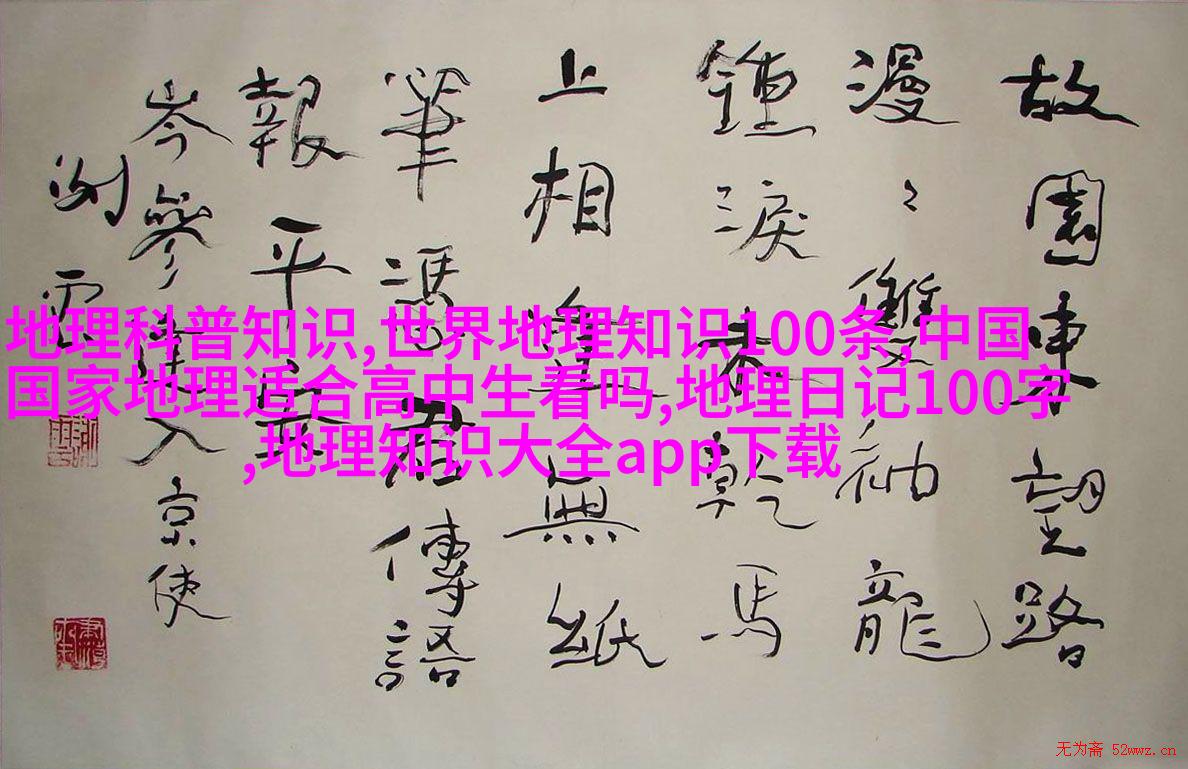 故園東望路
漫〻雙袖龍
鍾淚乾馬
上相逢無紙
筆憑君傳語
報平安
岑參逢入京使
地理科普知识,世界地理知识100条,中国
国家地理适合高中生看吗,地理日记100字
,地理知识大全app下载
无为斋 52wwz.cn